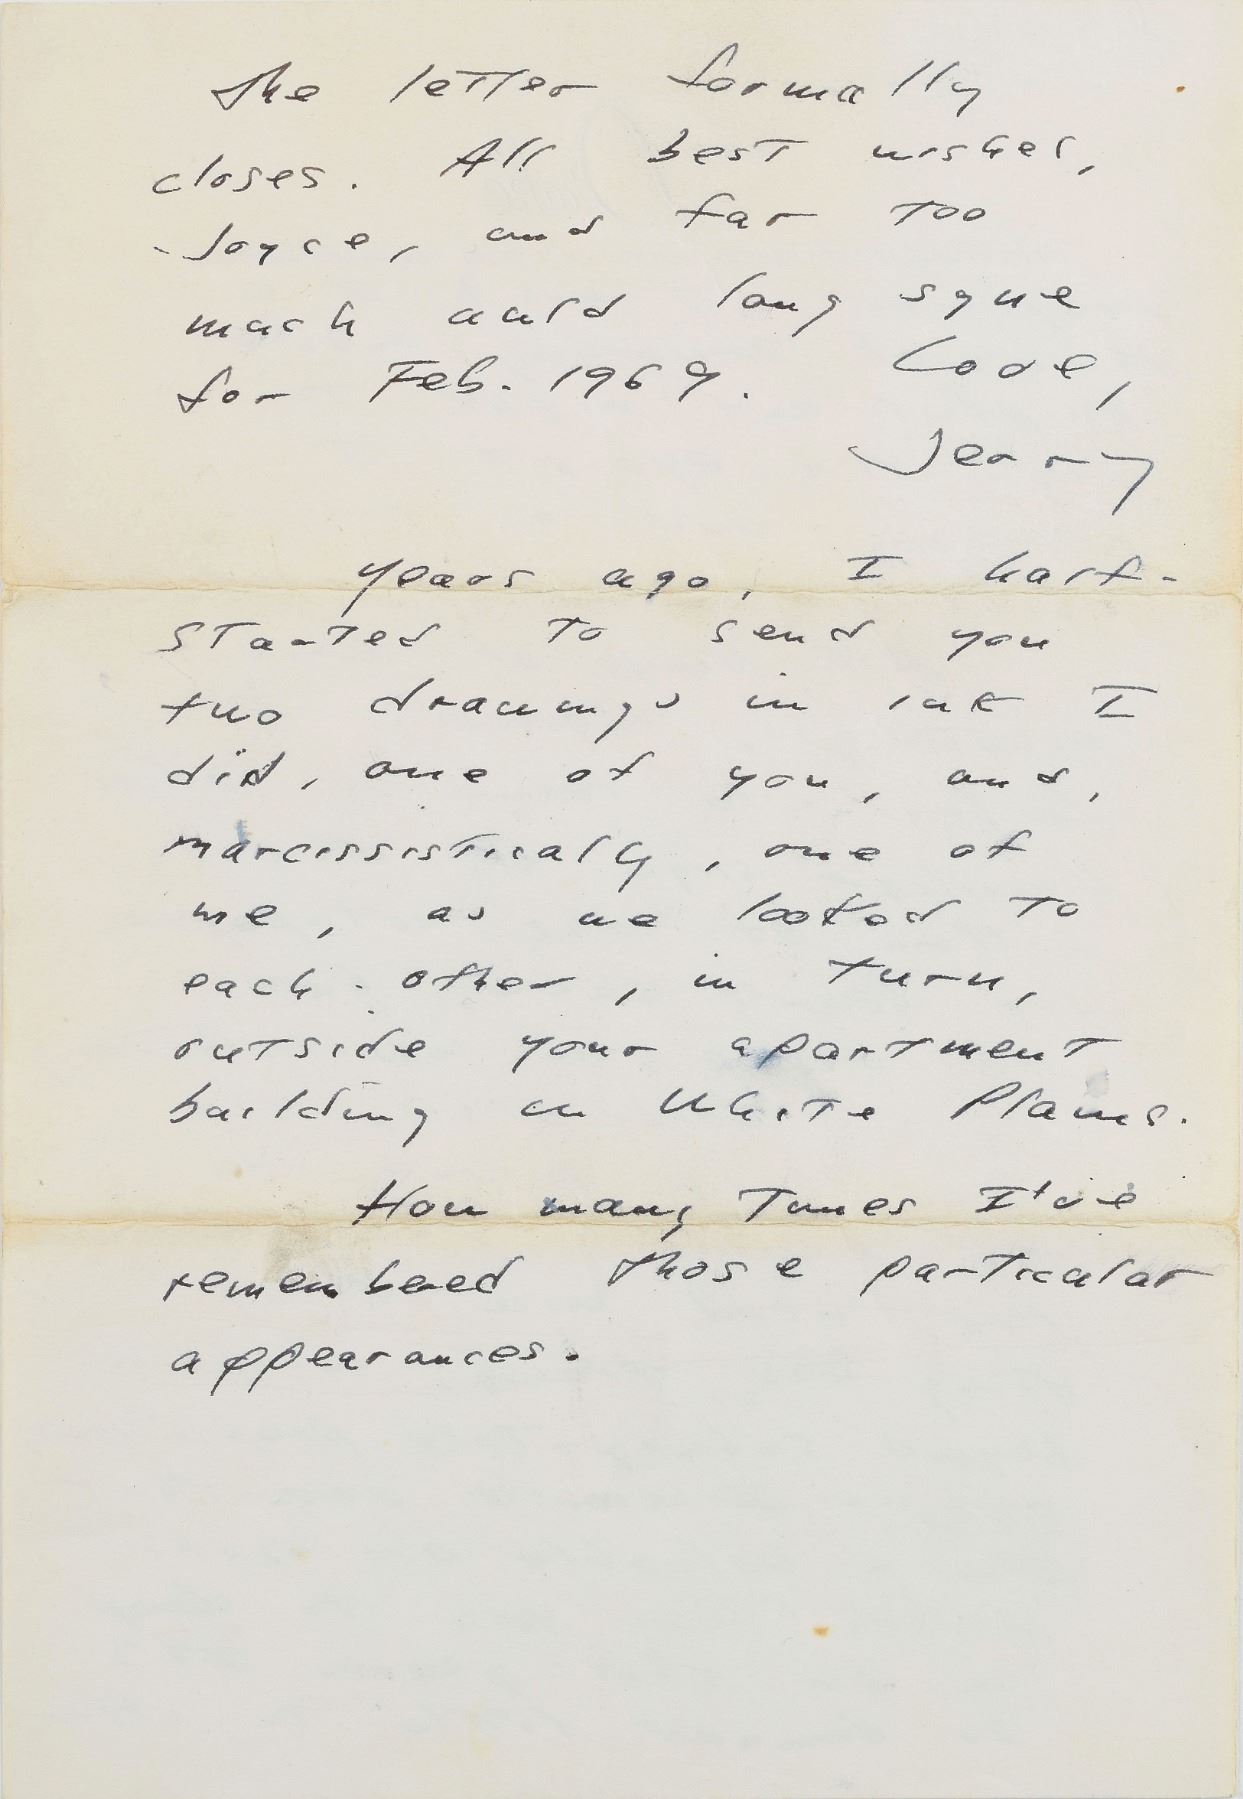 The letter formally
closes. All best wishes,
Joyce, and far too
much auld lang syne
for Feb. 1969. Love,
Jerry
Years ago, I half-
started to send you
two drawings in ink I
did, one of you, and,
narcissistically, one of
me, as we looked to
each other, in turn,
outside your apartment
building in White Plains.
How many times I've
remembered those particular
appearances.